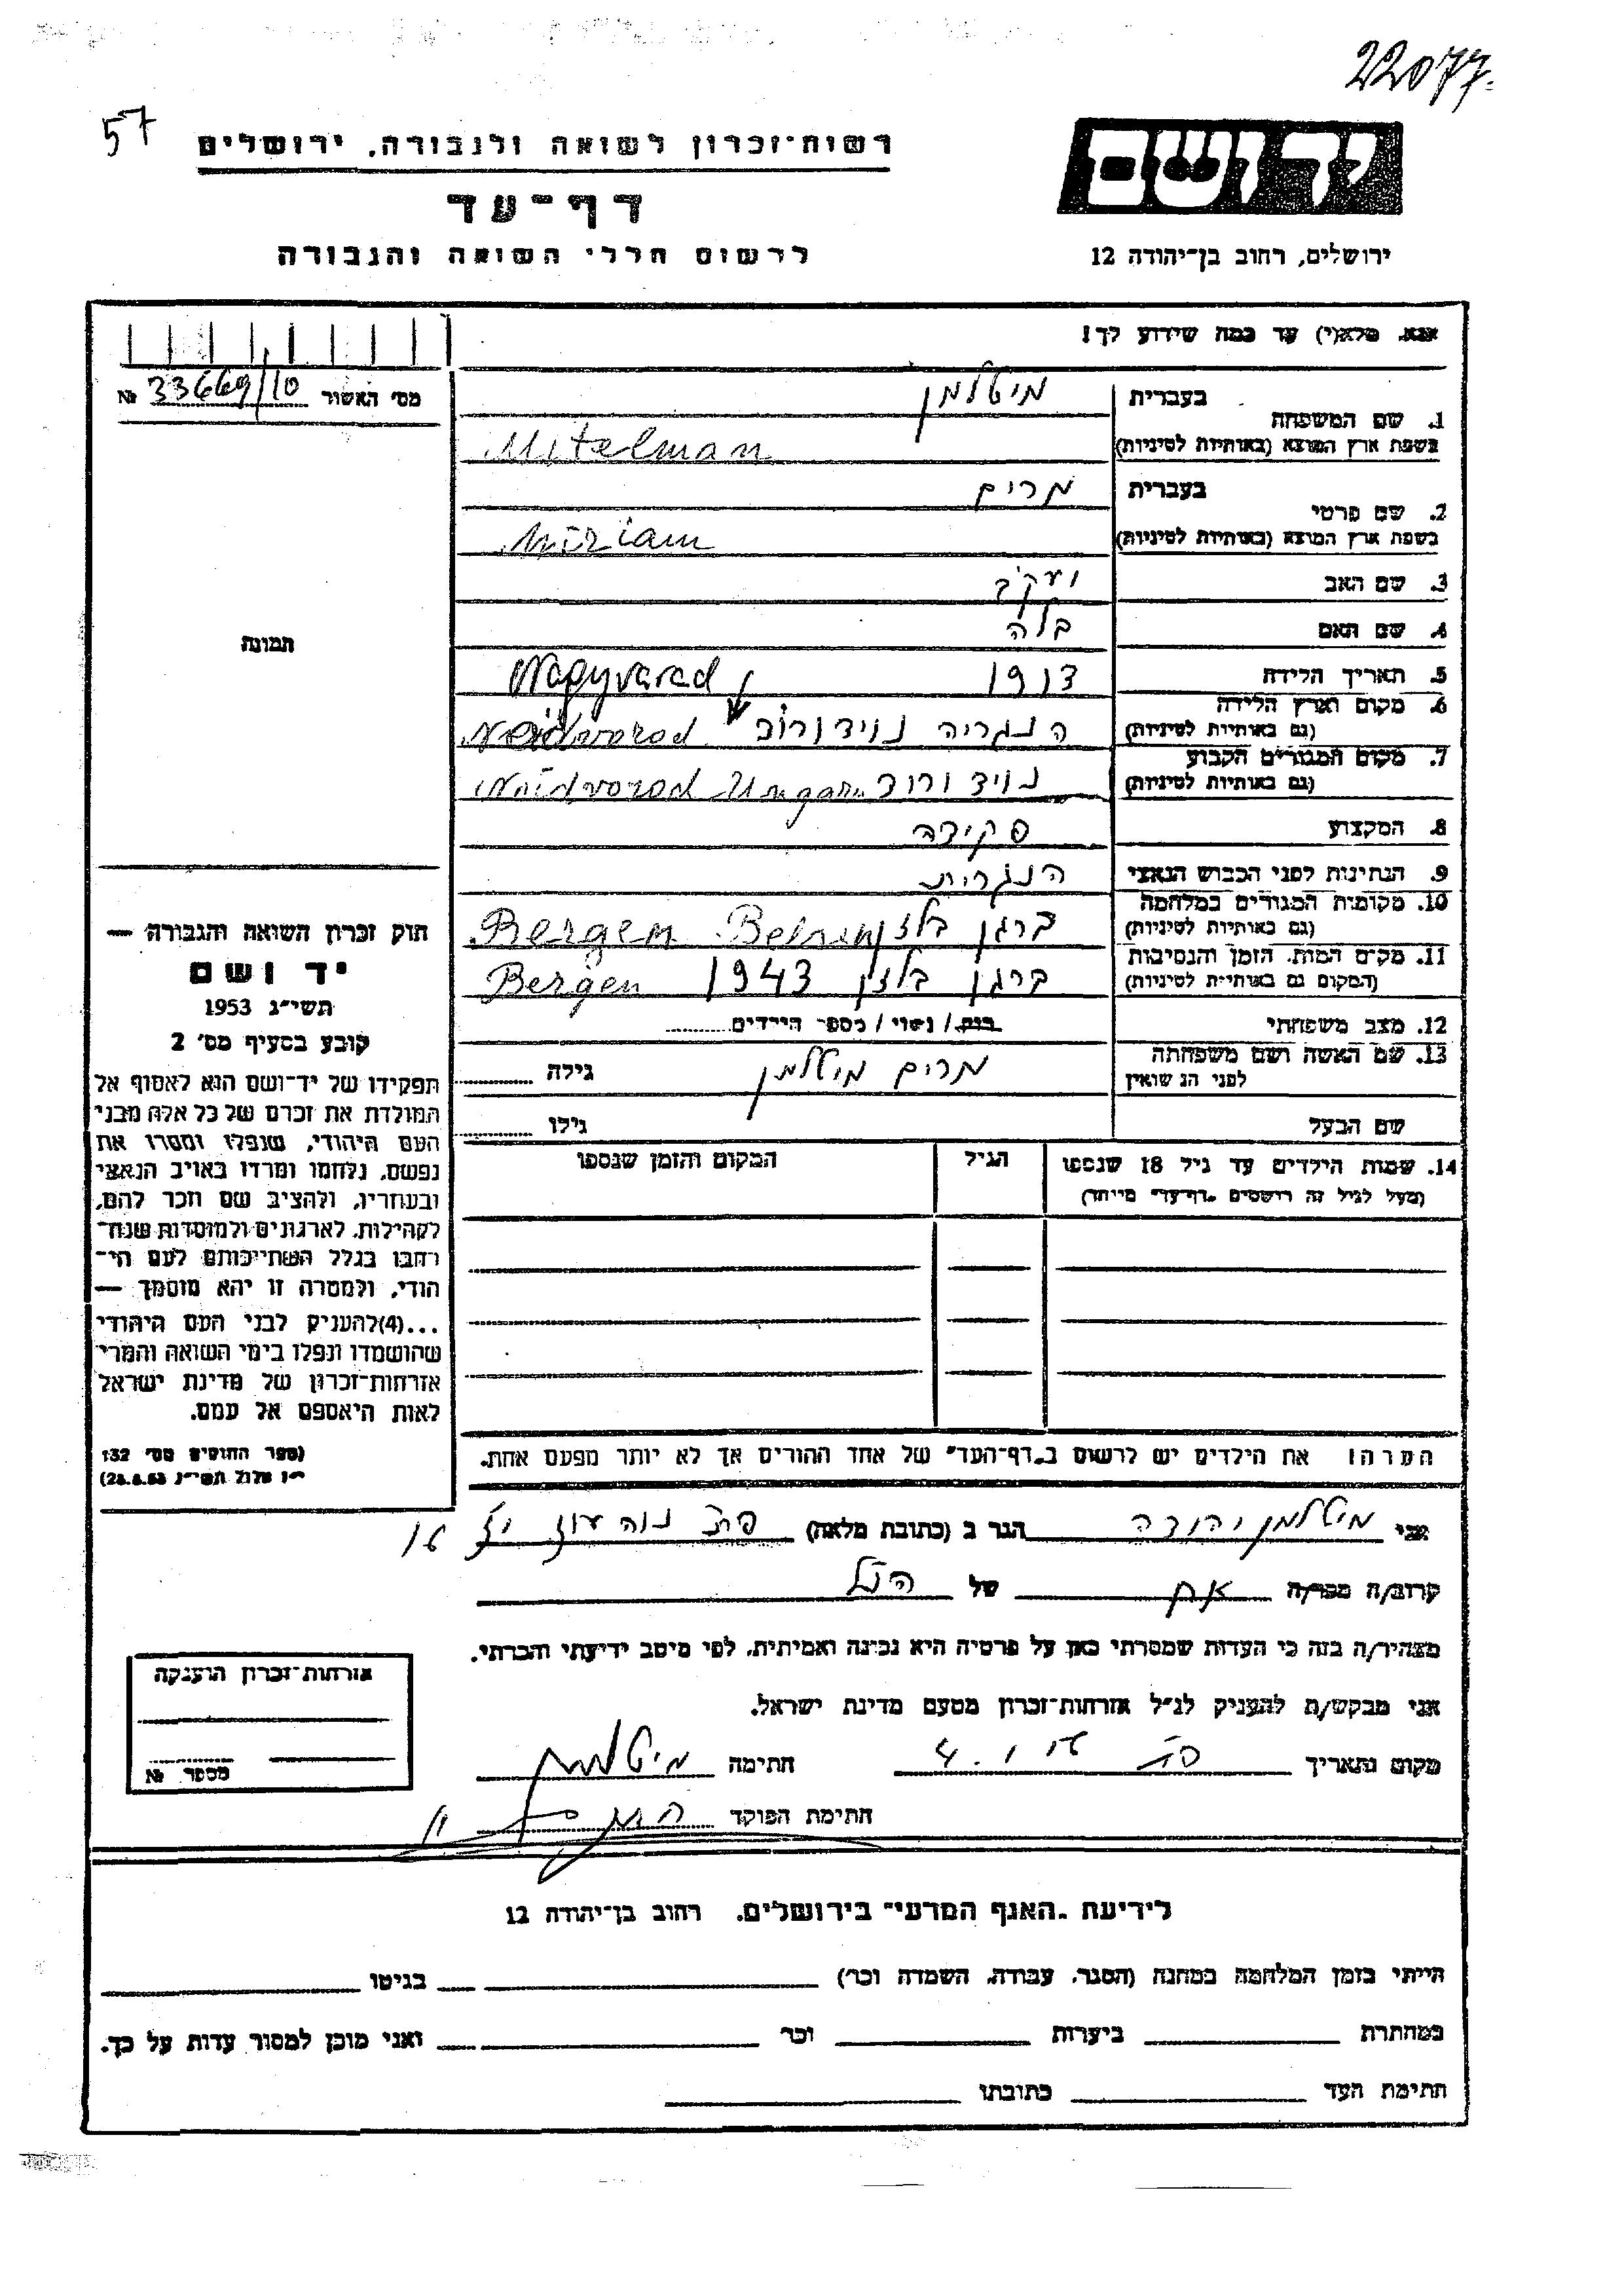 22077
57
רשות־זכרון לשואה ולגבורה, ירושלים
יד ושם
דף־עד
לרשום חללי השואה והגבורה
ירושלים, רחוב בן־יהודה 12
אנא, מלא(י) עד כמה שידוע לך!
מס׳ האשור 33669/10 №
1. שם המשפחה בעברית מיטלמן
בשפת ארץ המוצא (באותיות לטיניות) Mitelman
2. שם פרטי בעברית מרים
בשפת ארץ המוצא (באותיות לטיניות) Miriam
3. שם האב יעקב
4. שם האם בלה
תמונה
5. תאריך הלידה 1913 Nagyvarad
6. מקום וארץ הלידה (גם באותיות לטיניות) הנגריה נוידורוד Neidvorod
7. מקום המגורים הקבוע (גם באותיות לטיניות) נויד ורוד Neidvorod Ungarn
8. המקצוע פקידה
9. הנתינות לפני הכבוש הנאצי הנגרית
10. מקומות המגורים במלחמה (גם באותיות לטיניות) ברגן בלזן Bergen Belsen
11. מקום המות, הזמן והנסיבות (המקום גם באותיות לטיניות) ברגן בלזן 1943 Bergen
12. מצב משפחתי רווק / נשוי / מספר הילדים
13. שם האשה ושם משפחתה לפני הנשואין מרים מיטלמן גילה
שם הבעל גילו
14. שמות הילדים עד גיל 18 שנספו הגיל המקום והזמן שנספו
(מעל לגיל זה רושמים „דף־עד״ מיוחד)
חוק זכרון השואה והגבורה —
יד ושם
תשי״ג 1953
קובע בסעיף מס׳ 2
תפקידו של יד־ושם הוא לאסוף אל
המולדת את זכרם של כל אלה מבני
העם היהודי, שנפלו ומסרו את
נפשם, נלחמו ומרדו באויב הנאצי
ובעוזריו, ולהציב שם וזכר להם,
לקהילות, לארגונים ולמוסדות שנח־
רבו בגלל השתייכותם לעם הי־
הודי, ולמטרה זו יהא מוסמך —
...(4)להעניק לבני העם היהודי
שהושמדו ונפלו בימי השואה והמרי
אזרחות־זכרון של מדינת ישראל
לאות היאספם אל עמם.
(ספר החוקים מס׳ 132
י״ז אלול תשי״ג 28.8.53)
הערה: את הילדים יש לרשום ב„דף־העד״ של אחד ההורים אך לא יותר מפעם אחת.
אני מיטלמן יהודה הגר ב (כתובת מלאה) פת נוה עוז
קרוב/ה מפר/ה אח של הנ״ל
מצהיר/ה בזה כי העדות שמסרתי כאן על פרטיה היא נכונה ואמיתית, לפי מיטב ידיעתי והכרתי.
אני מבקש/ת להעניק לנ״ל אזרחות־זכרון מטעם מדינת ישראל.
מקום ותאריך פת 4.1 חתימה מיטלמן
חתימת הפוקד
אזרחות־זכרון הוענקה
מספר №
לידיעת „האגף המדעי״ בירושלים, רחוב בן־יהודה 12
הייתי בזמן המלחמה במחנה (הסגר, עבודה, השמדה וכו׳) בגיטו
במחתרת ביערות וכו׳ ואני מוכן למסור עדות על כך.
חתימת העד כתובתו